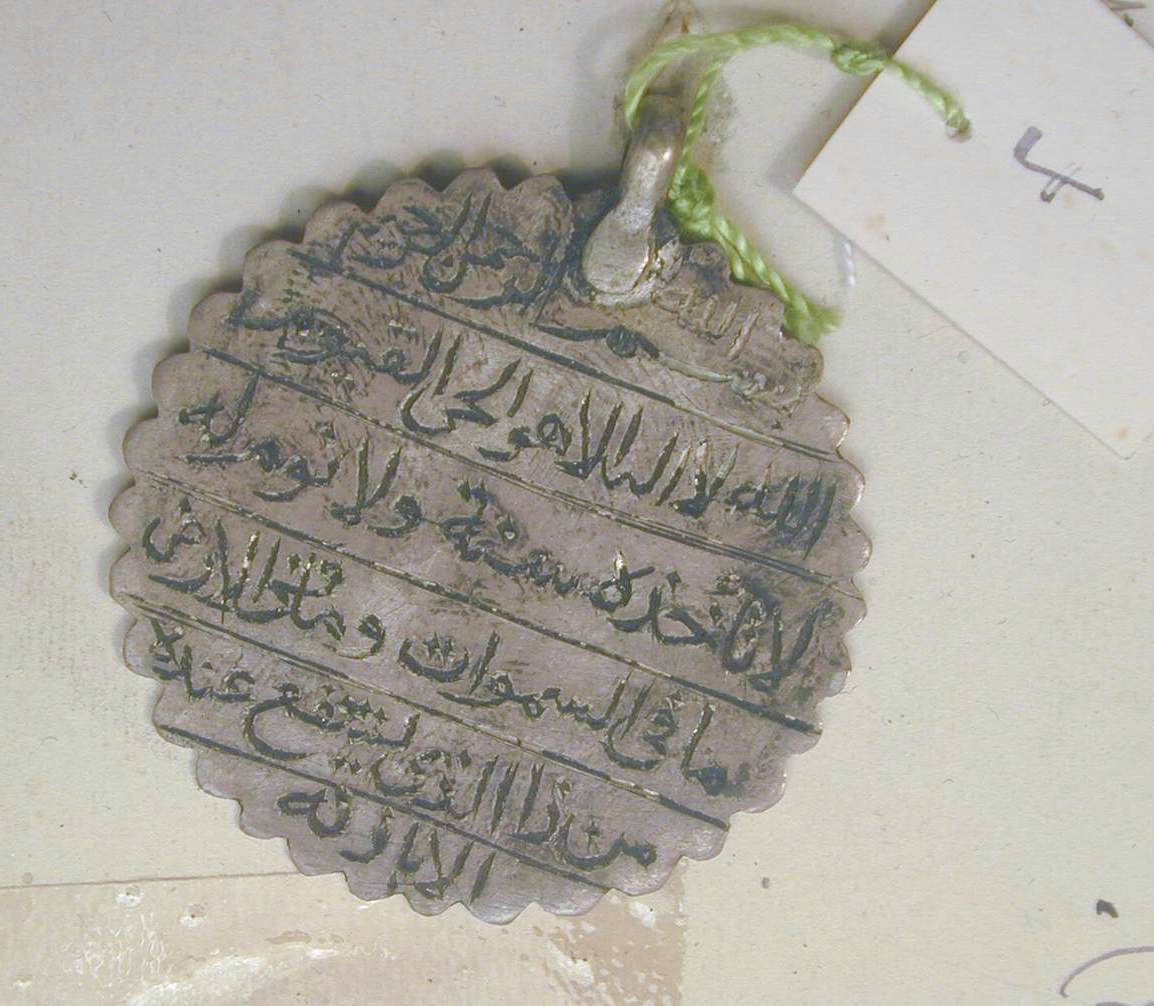 بسم الله الرحمن الرحيم
الله لا اله الا هو الحى القيوم
لا تأخذه سنة ولا نوم له
ما فى السموات وما فى الارض
من ذا الذى يشفع عنده
الا باذنه